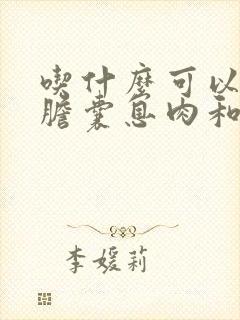 喫什麼可以
膽囊息肉和
李媛莉